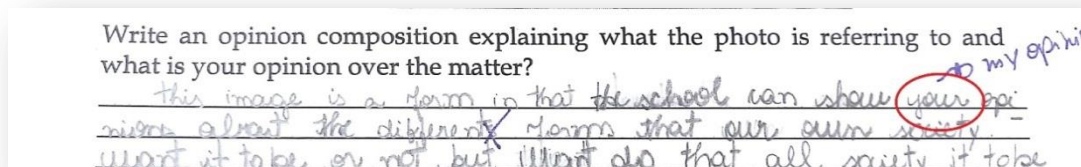 Write an opinion composition explaining what the photo is referring to and
what is your opinion over the matter?
my opini
this image is a form in that the school can show your opi
nions about the differents forms that our own society
want it to be or not, but want also that all society it tobe